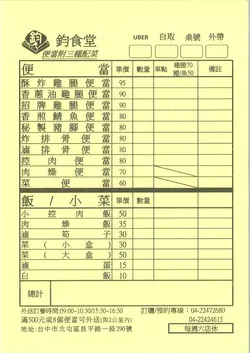 鈞食堂
便當附三種配菜
UBER 自取 桌號 外帶
便當 單價 數量 單點 雞腿70 備註
酥炸雞腿便當 95
香蔥油雞腿便當 90
招牌雞腿便當 90
香煎鯖魚便當 80
秘製豬腳便當 80
炸排骨便當 80
滷排骨便當 80
控肉便當 80
肉燥便當 70
菜便當 60
飯/小菜 單價 數量
小控肉飯 50
肉燥飯 35
滷筍子 30
菜(小盒) 30
菜(大盒) 50
滷蛋 15
白飯 10
總計
外送訂餐時間:09:00~10:30/15:30~16:30
滿500元或8個便當可外送(限2公里內)
地址:台中市北屯區昌平路一段290號
訂購/預約專線:04-22472680
04-22424615
每週六店休